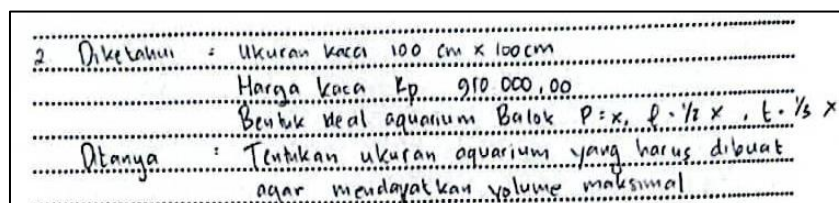 2 Diketahui : Ukuran kaca 100 cm x 100 cm
Harga kaca Rp 910.000,00
Bentuk ideal aquarium Balok P = x, l = 1/2 x, t = 1/3 x
Ditanya : Tentukan ukuran aquarium yang harus dibuat
agar mendapatkan volume maksimal